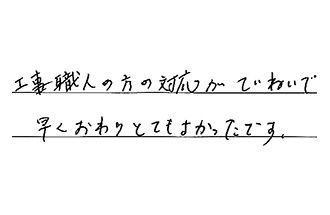 工事職人の方の対応がていねいで
早くおわりとてもよかったです。